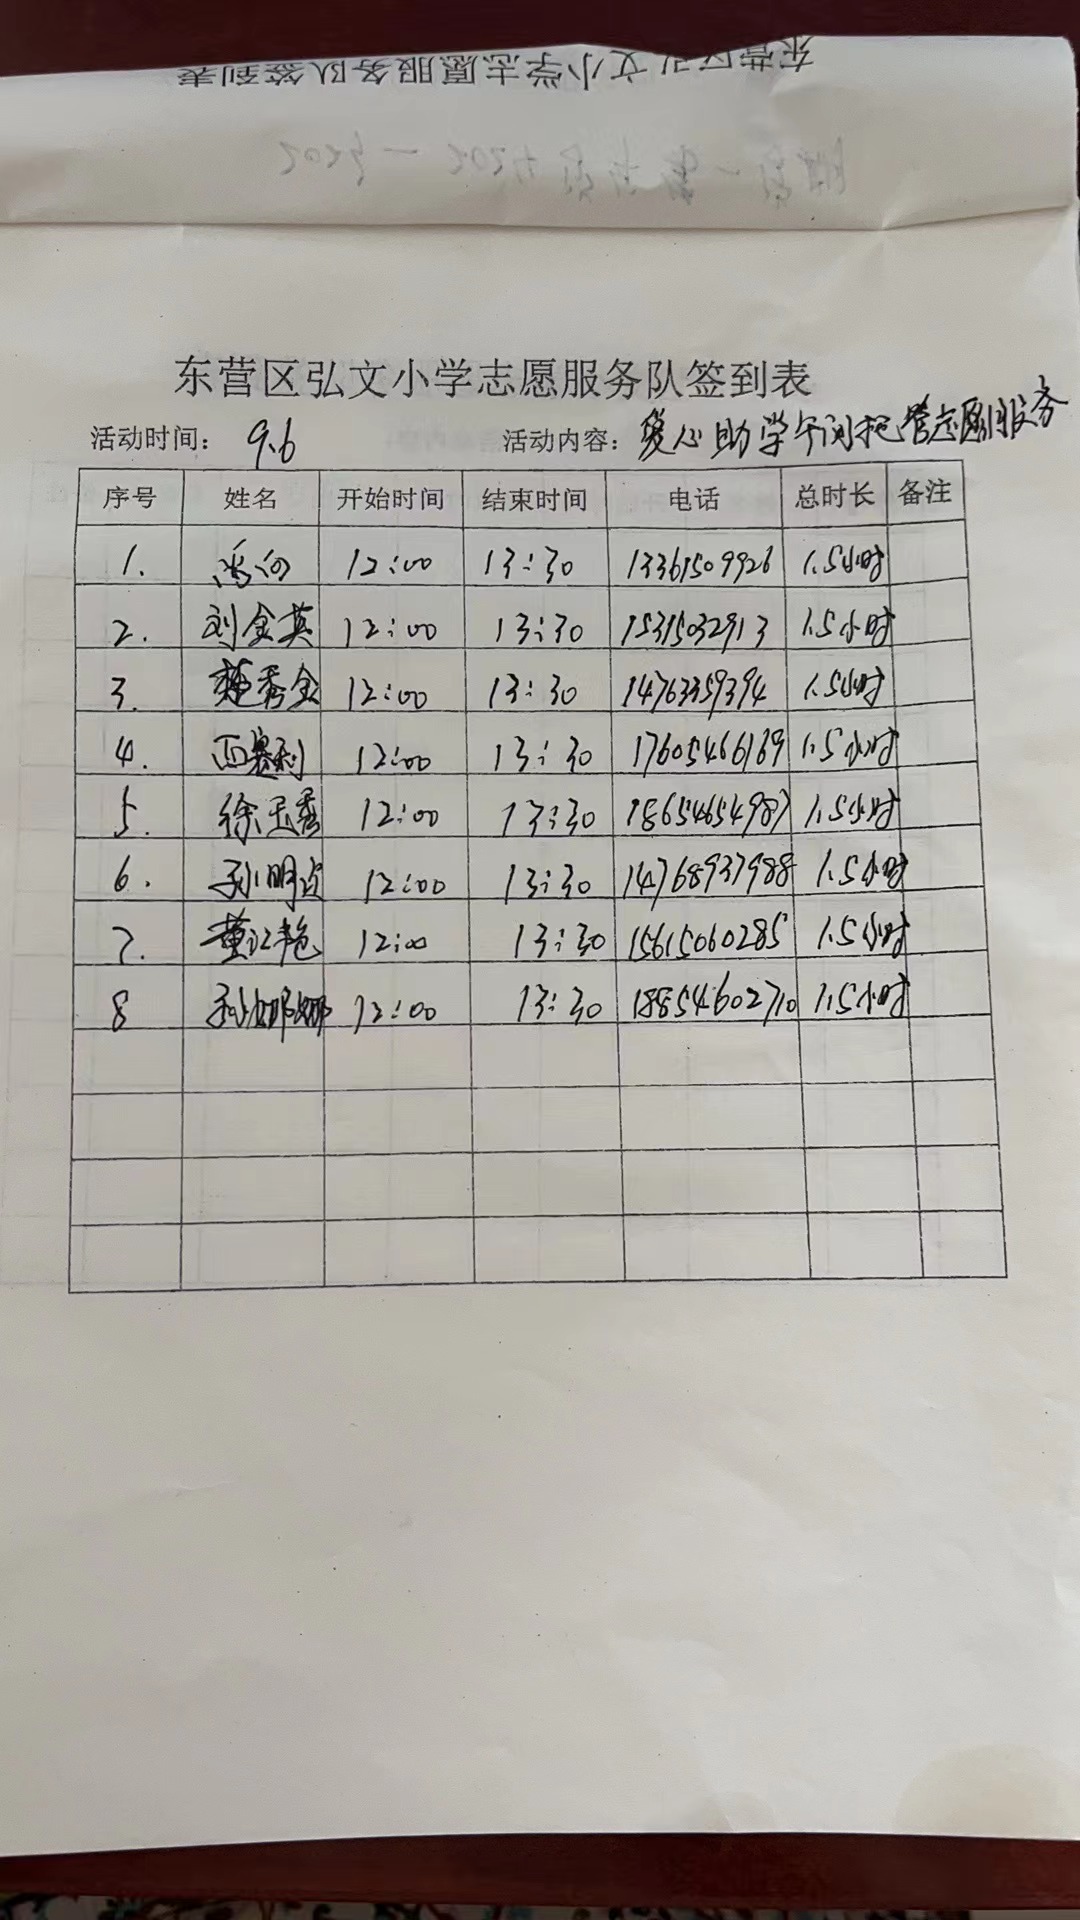 东营区弘文小学志愿服务队签到表
东营区弘文小学志愿服务队签到表
活动时间： 9.6 活动内容：爱心助学午间托管志愿服务
序号 姓名 开始时间 结束时间 电话 总时长 备注
1. 冯向 12:00 13:30 13361509926 1.5小时
2. 刘金英 12:00 13:30 15315032913 1.5小时
3. 秀金 12:00 13:30 14763359394 1.5小时
4. 12:00 13:30 17605466169 1.5小时
5. 徐玉秀 12:00 13:30 18654654987 1.5小时
6. 孙明贞 12:00 13:30 14768937988 1.5小时
7. 董江艳 12:00 13:30 15615060285 1.5小时
8 孙娜娜 12:00 13:30 18854602710 1.5小时